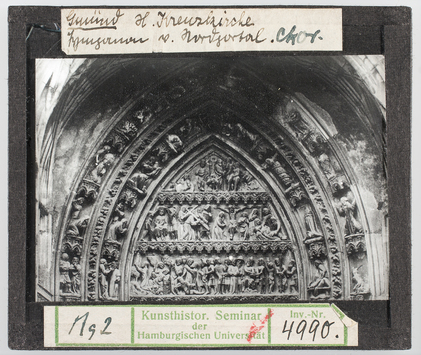 Gmünd H. Kreuzkirche
Tympanon v. Nordportal. Chor.
Mg2
Kunsthistor. Seminar
der
Hamburgischen Universität
Inv.-Nr.
4990.